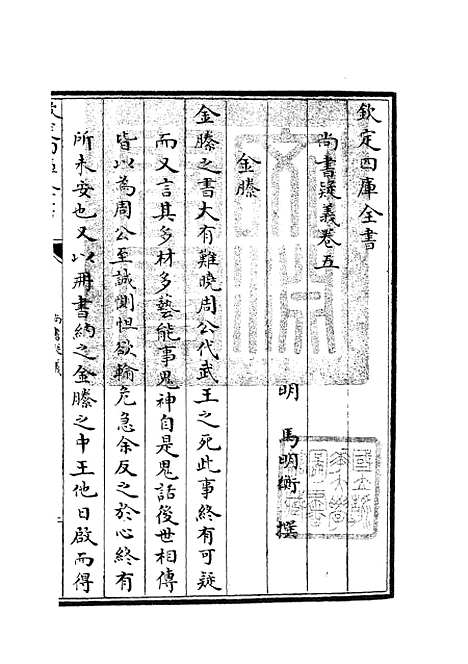 欽定四庫全書
尚書疑義卷五
明 馬明衡 撰
金縢
金縢之書大有難曉周公代武王之死此事終有可疑
而又言其多材多藝能事鬼神自是鬼話後世相傳
皆以為周公至誠惻怛欲輸危急余反之於心終有
所未安也又以冊書納之金縢之中王他日啟而得
尚書疑義